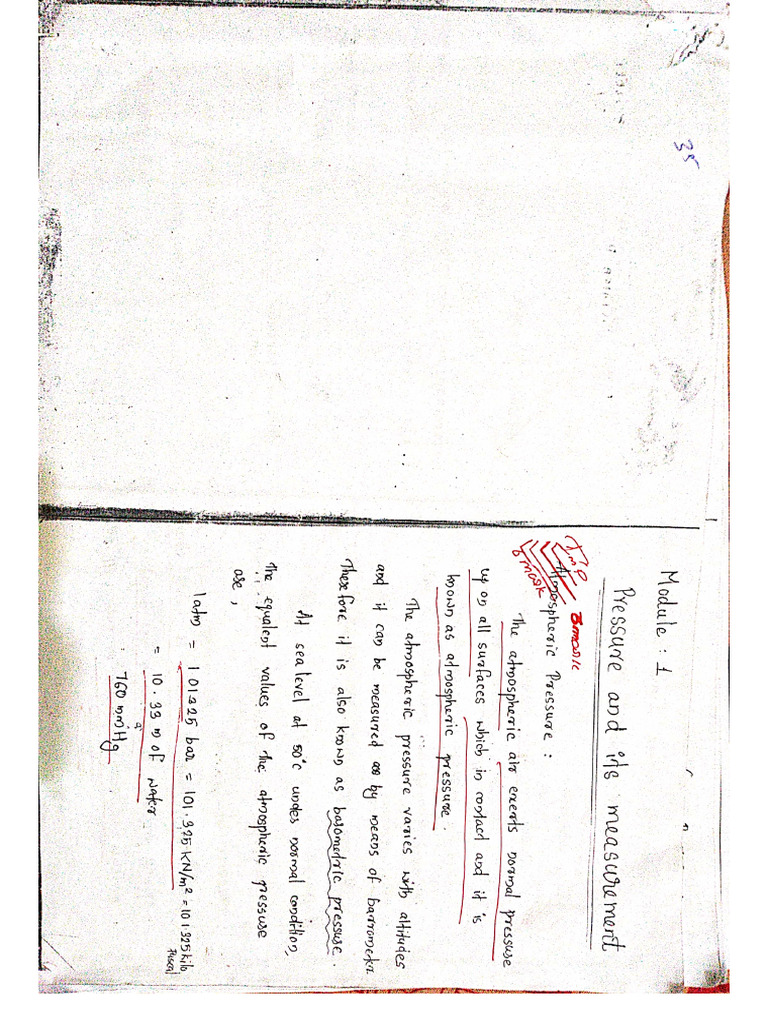 35
Module : 1
Pressure and its measurement
Imp
Atmospheric Pressure :
3 mark
The atmospheric air exerts normal pressure
up on all surfaces which in contact and it is
known as atmospheric pressure.
The atmospheric pressure varies with altitudes
and it can be measured by means of barrometer
Therefore it is also known as barometric pressure.
At sea level at 50°C under normal condition,
the equalent values of the atmospheric pressure
are,
1 atm = 1.01325 bar = 101.325 KN/m² = 101.325 kilo
= 10.33 m of water
: 760 mm Hg